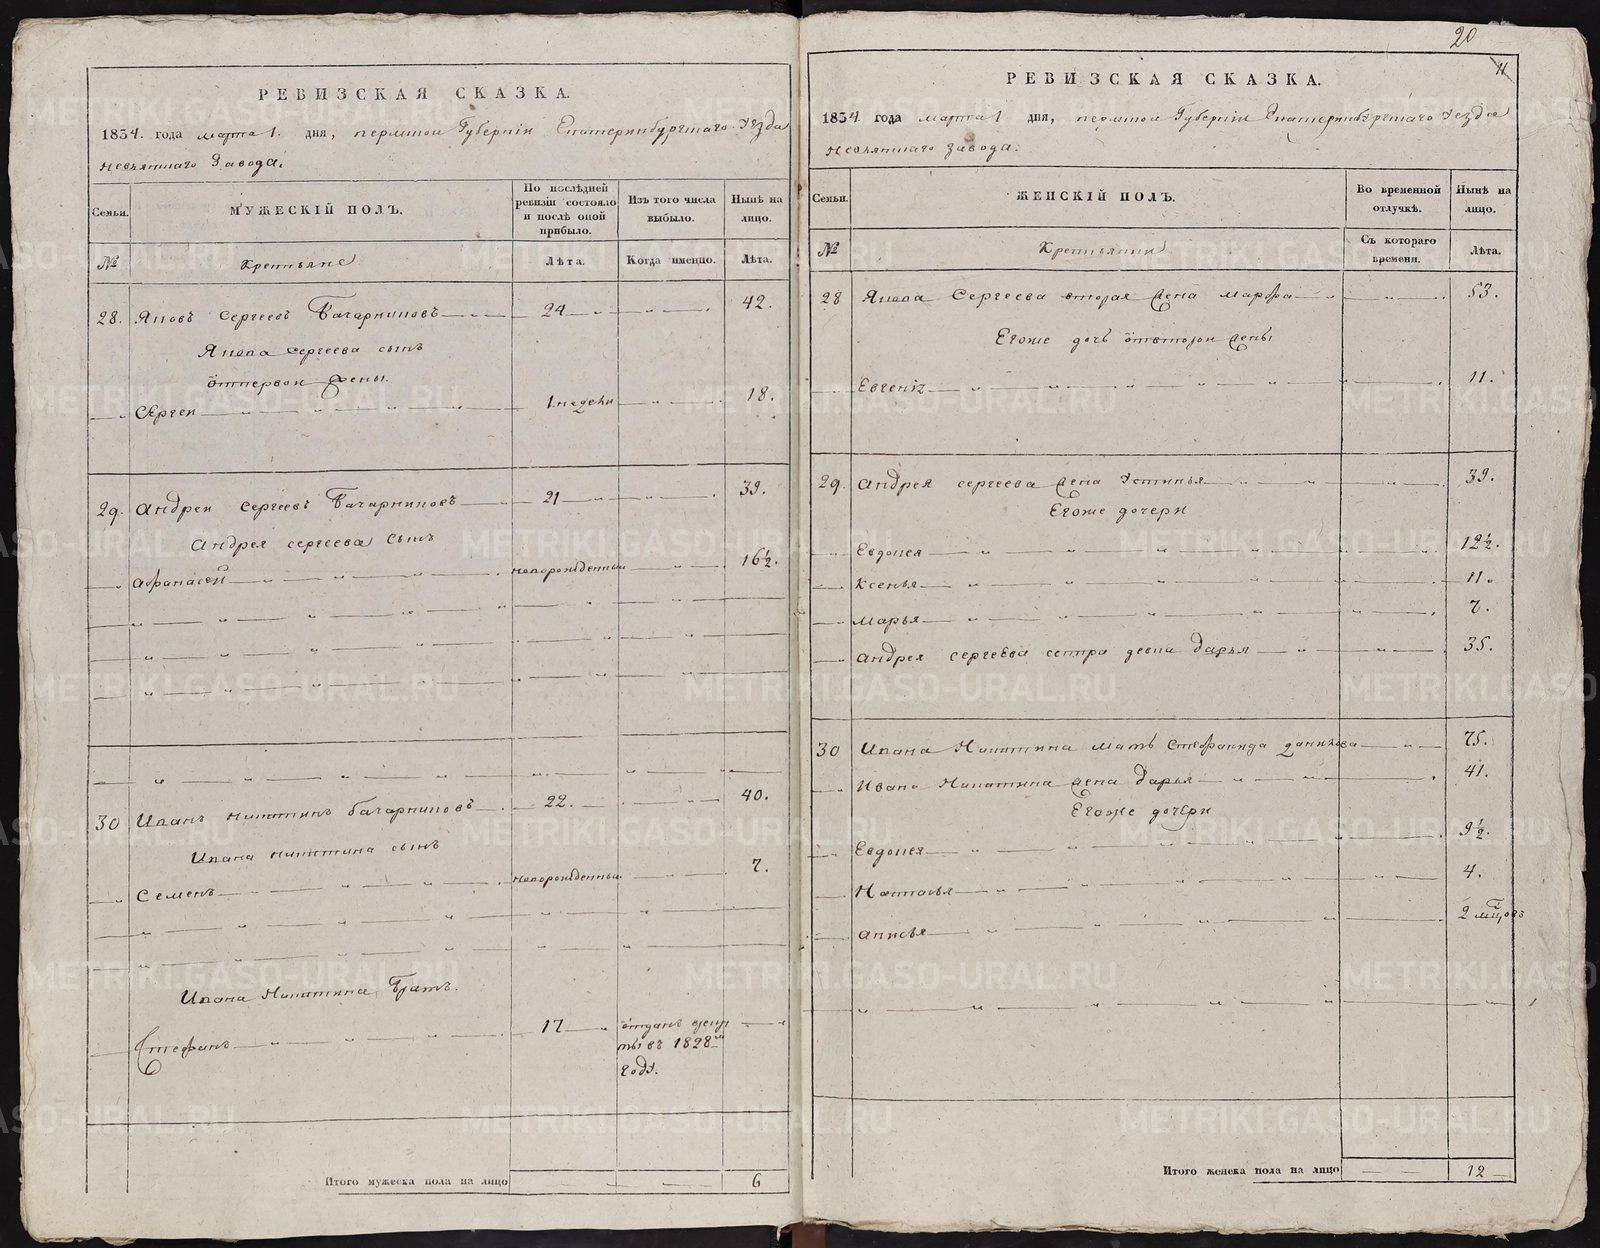 РЕВИЗСКАЯ СКАЗКА.
1834. года марта 1. дня, пермской Губернiи Екатеринбургскаго Уезда
Невьянскаго Завода.
Семьи.
МУЖЕСКIЙ ПОЛЪ.
По послѣдней ревизiи состояло и послѣ оной прибыло.
Изъ того числа выбыло.
Нынѣ на лицо.
№
Крестьяне
Лѣта.
Когда именно.
Лѣта.
28. Яковъ Сергеевъ Бачарниковъ 24 42.
Якова Сергеева сынъ
отпервои жены.
Сергеи 1 недели 18.
29. Андреи Сергеевъ Бачарниковъ 21 39.
Андрея сергеева Сынъ
Афанасеи новорожденныи 16½.
30 Иванъ Никитинъ Бачарниковъ 22. 40.
Ивана никитина сынъ
Семенъ новорожденныи 7.
Ивана Никитина Братъ.
Стефанъ 17 отданъ
въ 1828м
годУ.
Итого мужеска пола на лицо 6
20
11
РЕВИЗСКАЯ СКАЗКА.
1834 года марта 1 дня, пермской Губернiи Екатеринбургскаго Уезда
Невьянскаго завода.
Семьи.
ЖЕНСКIЙ ПОЛЪ.
Во временной отлучкѣ.
Нынѣ на лицо.
№
Крестьянки
Съ котораго времени.
Лѣта.
28 Якова Сергеева вторая жена марфа 53.
Егоже дочь отвторои жены
Евгенiя 11.
29. Андрея сергеева жена Устинья 39.
Егоже дочери
Евдокея 12½.
Ксенья 11.
марья 7.
Андрея сергеева сестра девка дарья 35.
30 Ивана Никитина мать Стефанида данилова 75.
Ивана Никитина жена дарья 41.
Егоже дочери
Евдокея 9½.
Настасья 4.
анисья 2 мцовъ
Итого женска пола на лицо 12
METRIKI.GASO-URAL.RU